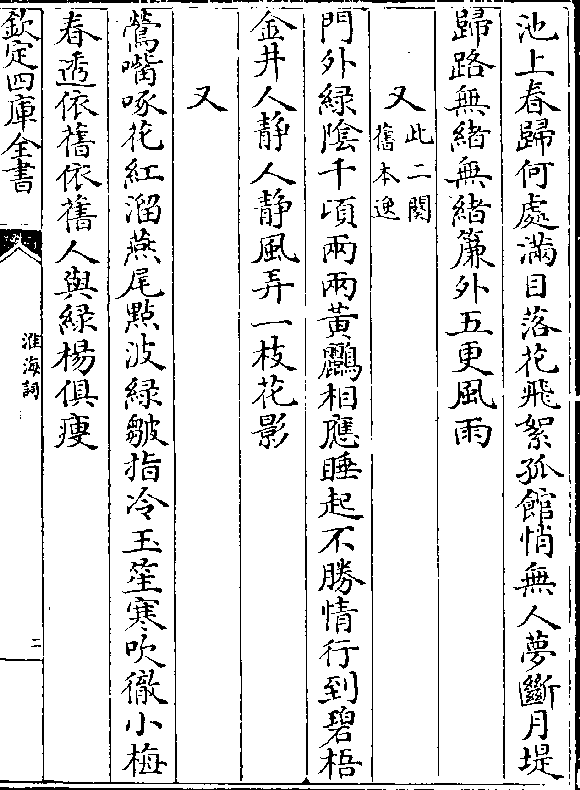 池上春歸何處滿目落花飛絮孤館悄無人夢斷月堤
歸路無緒無緒簾外五更風雨
又此二闋
舊本逸
門外綠陰千頃兩兩黃鸝相應睡起不勝情行到碧梧
金井人靜人靜風弄一枝花影
又
鶯嘴啄花紅溜燕尾點波綠皺指冷玉笙寒吹徹小梅
春透依舊依舊人與綠楊俱瘦
欽定四庫全書
淮海詞
二